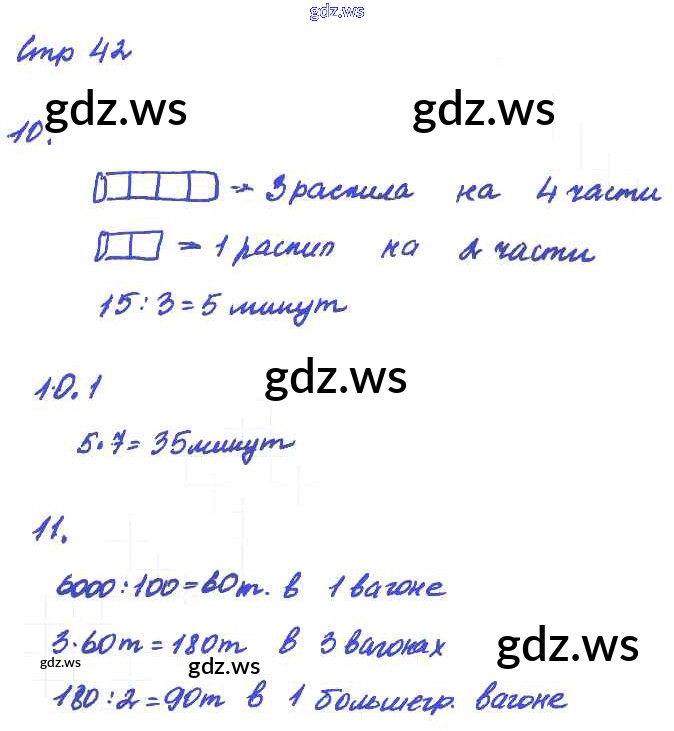 gdz.ws
Стр 42
gdz.ws gdz.ws
10.
→ 3 распила на 4 части
→ 1 распил на 2 части
15 : 3 = 5 минут
gdz.ws
10.1
5 · 7 = 35 минут
11.
6000 : 100 = 60 т. в 1 вагоне
3 · 60 т = 180 т в 3 вагонах
gdz.ws gdz.ws gdz.ws
180 : 2 = 90 т в 1 большегр. вагоне